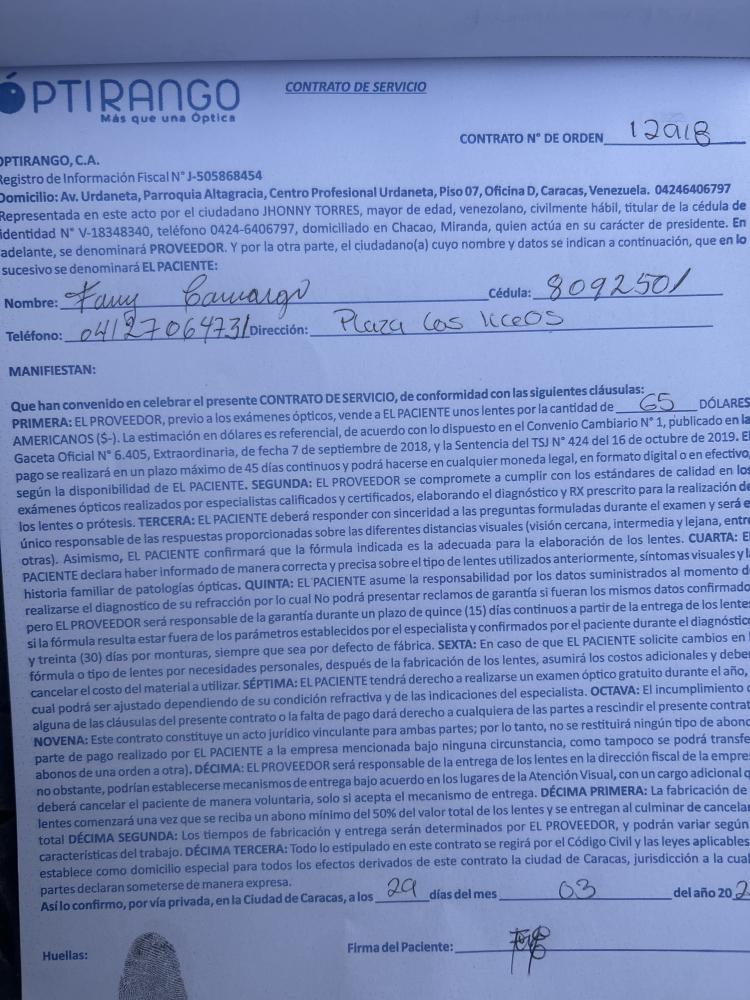 ÓPTIRANGO
Más que una Óptica
CONTRATO DE SERVICIO
CONTRATO N° DE ORDEN 12918
OPTIRANGO, C.A.
Registro de Información Fiscal N° J-505868454
Domicilio: Av. Urdaneta, Parroquia Altagracia, Centro Profesional Urdaneta, Piso 07, Oficina D, Caracas, Venezuela. 04246406797
Representada en este acto por el ciudadano JHONNY TORRES, mayor de edad, venezolano, civilmente hábil, titular de la cédula de
identidad N° V-18348340, teléfono 0424-6406797, domiciliado en Chacao, Miranda, quien actúa en su carácter de presidente. En
adelante, se denominará PROVEEDOR. Y por la otra parte, el ciudadano(a) cuyo nombre y datos se indican a continuación, que en lo
sucesivo se denominará EL PACIENTE:
Nombre: Fany Camargo Cédula: 8092501
Teléfono: 04127064731 Dirección: Plaza Los liceos
MANIFIESTAN:
Que han convenido en celebrar el presente CONTRATO DE SERVICIO, de conformidad con las siguientes cláusulas:
PRIMERA: EL PROVEEDOR, previo a los exámenes ópticos, vende a EL PACIENTE unos lentes por la cantidad de 65 DÓLARES
AMERICANOS ($-). La estimación en dólares es referencial, de acuerdo con lo dispuesto en el Convenio Cambiario N° 1, publicado en la
Gaceta Oficial N° 6.405, Extraordinaria, de fecha 7 de septiembre de 2018, y la Sentencia del TSJ N° 424 del 16 de octubre de 2019. El
pago se realizará en un plazo máximo de 45 días continuos y podrá hacerse en cualquier moneda legal, en formato digital o en efectivo,
según la disponibilidad de EL PACIENTE. SEGUNDA: EL PROVEEDOR se compromete a cumplir con los estándares de calidad en los
exámenes ópticos realizados por especialistas calificados y certificados, elaborando el diagnóstico y RX prescrito para la realización de
los lentes o prótesis. TERCERA: EL PACIENTE deberá responder con sinceridad a las preguntas formuladas durante el examen y será e
único responsable de las respuestas proporcionadas sobre las diferentes distancias visuales (visión cercana, intermedia y lejana, entre
otras). Asimismo, EL PACIENTE confirmará que la fórmula indicada es la adecuada para la elaboración de los lentes. CUARTA: E
PACIENTE declara haber informado de manera correcta y precisa sobre el tipo de lentes utilizados anteriormente, síntomas visuales y la
historia familiar de patologías ópticas. QUINTA: EL PACIENTE asume la responsabilidad por los datos suministrados al momento d
realizarse el diagnostico de su refracción por lo cual No podrá presentar reclamos de garantía si fueran los mismos datos confirmado
pero EL PROVEEDOR será responsable de la garantía durante un plazo de quince (15) días continuos a partir de la entrega de los lente
si la fórmula resulta estar fuera de los parámetros establecidos por el especialista y confirmados por el paciente durante el diagnóstic
y treinta (30) días por monturas, siempre que sea por defecto de fábrica. SEXTA: En caso de que EL PACIENTE solicite cambios en l
fórmula o tipo de lentes por necesidades personales, después de la fabricación de los lentes, asumirá los costos adicionales y debe
cancelar el costo del material a utilizar. SÉPTIMA: EL PACIENTE tendrá derecho a realizarse un examen óptico gratuito durante el año,
cual podrá ser ajustado dependiendo de su condición refractiva y de las indicaciones del especialista. OCTAVA: El incumplimiento
alguna de las cláusulas del presente contrato o la falta de pago dará derecho a cualquiera de las partes a rescindir el presente contrat
NOVENA: Este contrato constituye un acto jurídico vinculante para ambas partes; por lo tanto, no se restituirá ningún tipo de abono
parte de pago realizado por EL PACIENTE a la empresa mencionada bajo ninguna circunstancia, como tampoco se podrá transfe
abonos de una orden a otra). DÉCIMA: EL PROVEEDOR será responsable de la entrega de los lentes en la dirección fiscal de la empre
no obstante, podrían establecerse mecanismos de entrega bajo acuerdo en los lugares de la Atención Visual, con un cargo adicional q
deberá cancelar el paciente de manera voluntaria, solo si acepta el mecanismo de entrega. DÉCIMA PRIMERA: La fabricación de
lentes comenzará una vez que se reciba un abono mínimo del 50% del valor total de los lentes y se entregan al culminar de cancelar
total DÉCIMA SEGUNDA: Los tiempos de fabricación y entrega serán determinados por EL PROVEEDOR, y podrán variar según
características del trabajo. DÉCIMA TERCERA: Todo lo estipulado en este contrato se regirá por el Código Civil y las leyes aplicables
establece como domicilio especial para todos los efectos derivados de este contrato la ciudad de Caracas, jurisdicción a la cual
partes declaran someterse de manera expresa.
Así lo confirmo, por vía privada, en la Ciudad de Caracas, a los 29 días del mes 03 del año 202
Huellas:
Firma del Paciente: